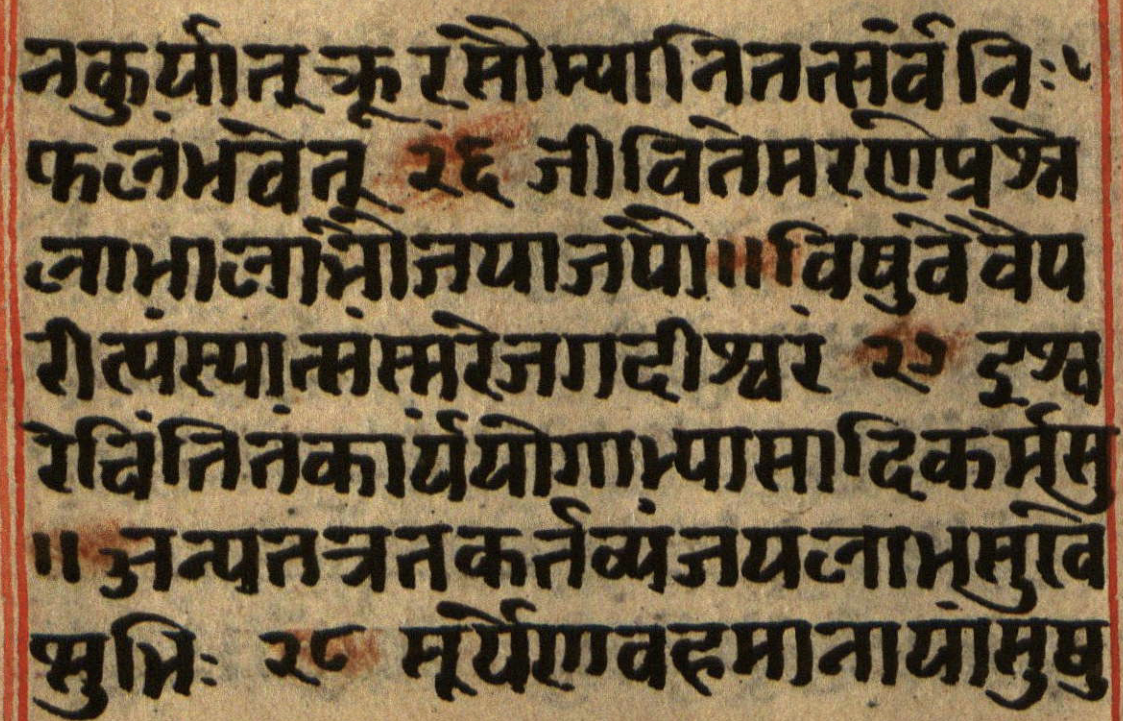 नकुर्यात् क्रूरसौम्यानितत्सर्वंनिः
फलंभवेत् २६ जीवितेमरणेप्रश्ने
लाभालाभौजयाजयौ॥विषुवेवैप
रीत्यंस्यात्संस्मरेजगदीश्वरं २७ इश्व
रेचिंतितंकार्यंयोगाभ्यासादिकर्मसु
॥अन्यतत्रनकर्तव्यंजयलाभसुखै
षुभिः २८ सूर्येणवहमानायांसुषु